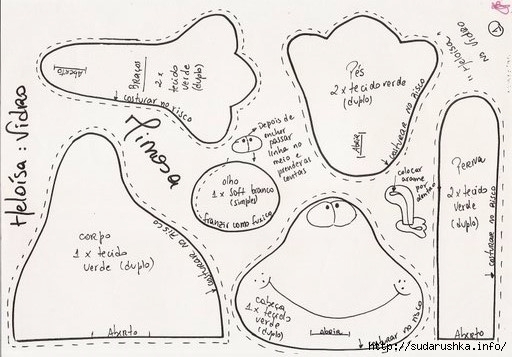 Heloísa : Vidro
Mimosa
"Heloísa
no vidro
1
Aberto
Braços
2 x
tecido
verde
(duplo)
↓ costurar no risco
Pés
2 x tecido verde
(duplo)
Abrir
↓ costurar no risco
Depois de
encher
passar
linha no
meio e
prender as
contas
olho
1 x soft branco
(simples)
franzir como fuxico
colocar
arame
por
dentro
Perna
2 x tecido
verde
(duplo)
↓ costurar no risco
Aberto
corpo
1 x tecido
verde (duplo)
↓ costurar no risco
Aberto
cabeça
1 x tecido
verde
(duplo)
abrir
↓ costurar no risco
http://sudarushka.info/